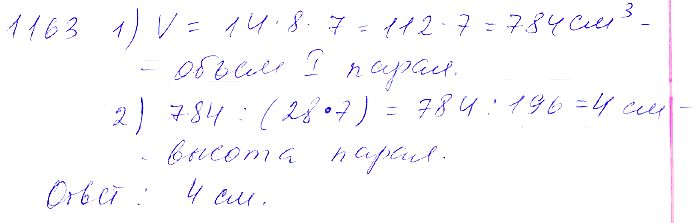 1163 1) V = 14 · 8 · 7 = 112 · 7 = 784 см³ -
- объем I парал.
2) 784 : (28 · 7) = 784 : 196 = 4 см -
- высота парал.
Ответ : 4 см.